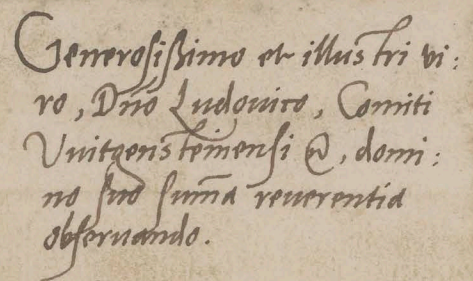 Generosißimo et illustri vi:
ro, Dño Ludovico, Comiti
Vuitgensteinensi &, domi:
no suo sum̄a reverentia
observando.